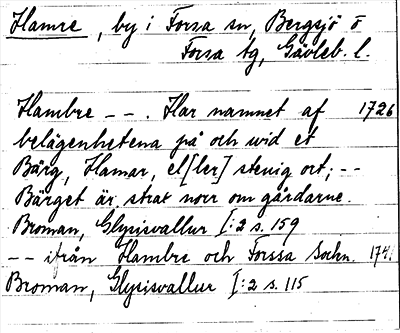 Hamre, by i Forsa sn, Bergsjö o
Forsa tg, Gävleb. l.
Hambre - - . Har namnet af 1726
belägenhetena på och wid et
Bärg, Hamar, el[ler] stenig ort; - -
Bärget är strax norr om gårdarne.
Broman, Glysisvallur I:2 s. 159
- - ifrån Hambre och Forssa Sochn. 174
Broman, Glysisvallur I:2 s. 115